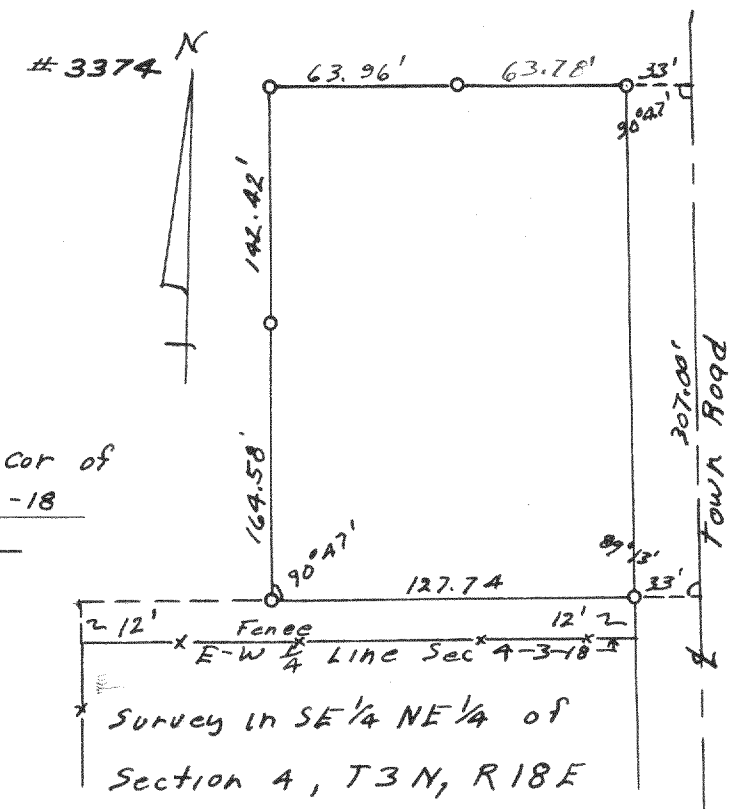 # 3374
N
63.96'
63.78'
33'
90°47'
142.42'
307.00'
Town Road
Cor of
-18
164.58'
90°47'
89°13'
127.74
33'
~ 12'
Fence
12' ~
E-W 1/4 Line Sec 4-3-18
Survey in SE 1/4 NE 1/4 of
Section 4, T3N, R18E